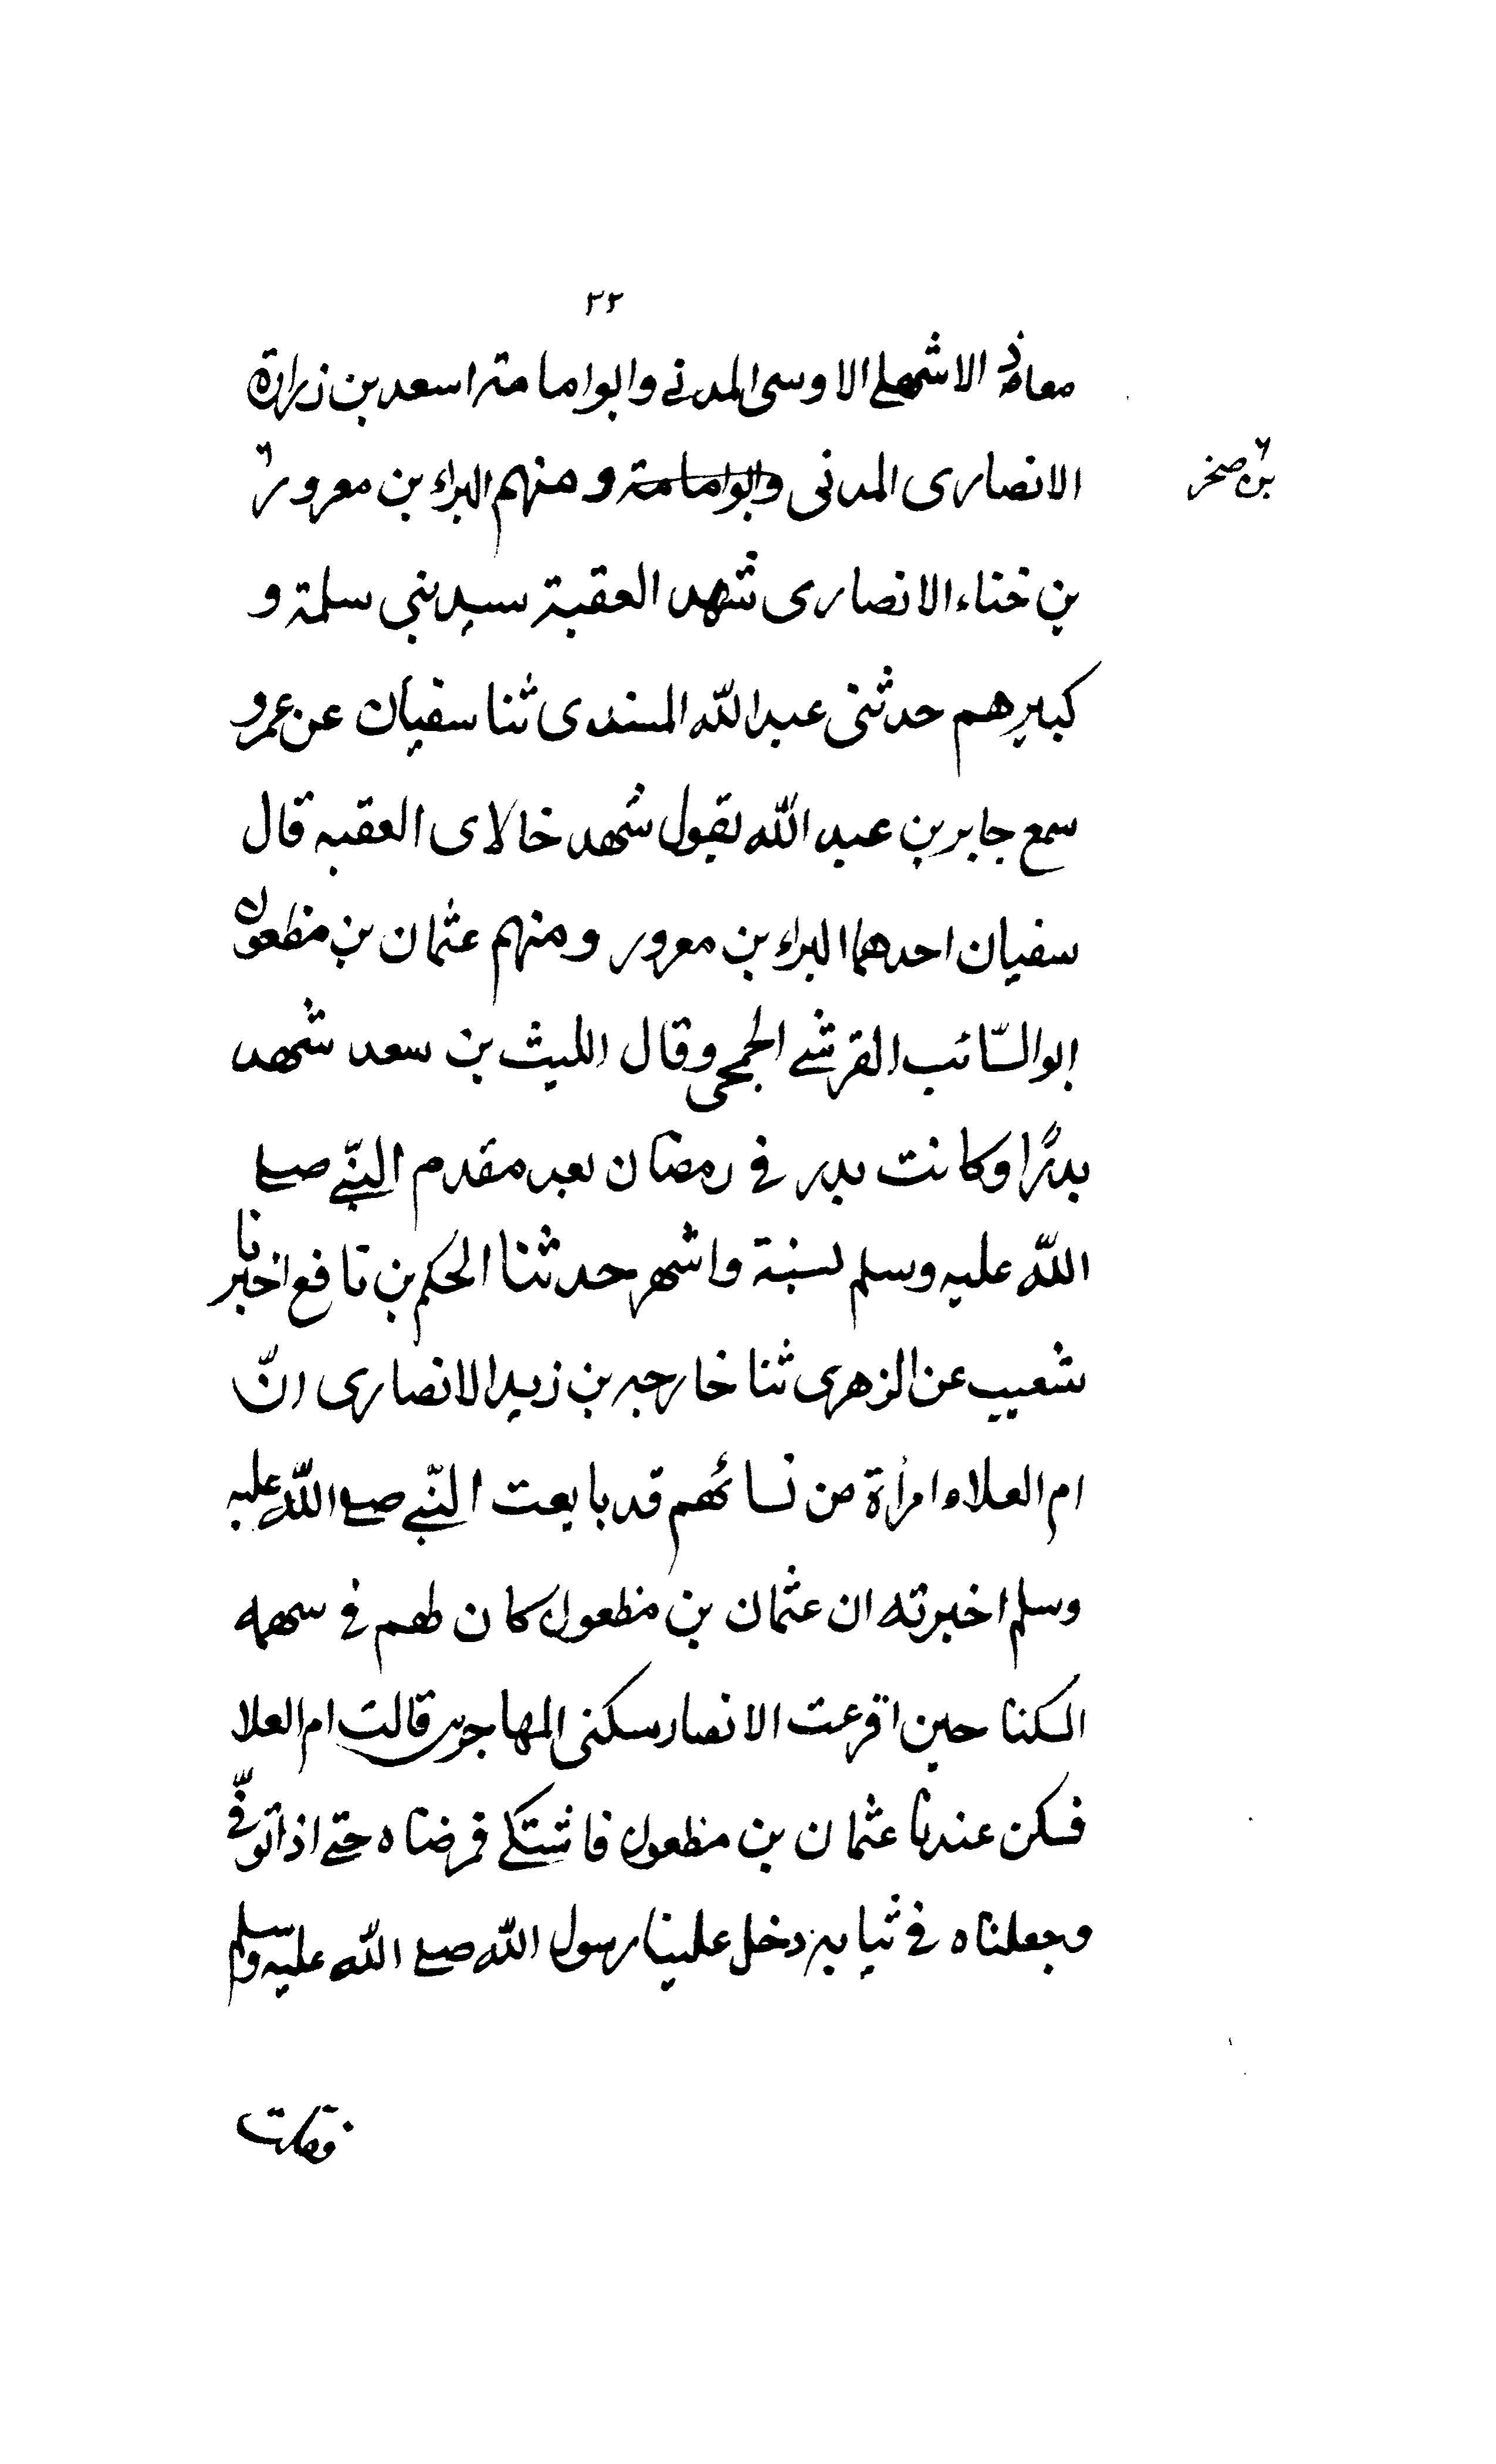 ٣٢
معاذ الاشهلي الاوسى المدني وابوامامة اسعد بن زرارة
الانصارى المدنى وابوامامة ومنهم البراء بن معرور
بن صخر
بن خنساء الانصارى شهد العقبة سيد بنى سلمة و
كبيرهم حدثنى عبد الله المسندى ثنا سفيان عن عمرو
سمع جابر بن عبد الله يقول شهد خالاى العقبه قال
سفيان احدهما البراء بن معرور ومنهم عثمان بن مظعون
ابو السّائب القرشي الجمحى وقال الليث بن سعد شهد
بدرًا وكانت بدر في رمضان بعد مقدم النبّي صلي
اللّه عليه وسلم لسنة واشهر حدثنا الحكم بن نافع اخبرنا
شعيب عن الزهرى ثنا خارجه بن زيد الانصارى انّ
ام العلاء امرأة من نسائهم قد بايعت النبّي صلي اللّه عليه
وسلم اخبرته ان عثمان بن مظعون كان طهم في سهمه
السكنا حين اقرعت الانصار سكنى المهاجرين قالت ام العلا
فسكن عندنا عثمان بن مظعون فاشتكي فمرضناه حتي اذا توفّي
وجعلناه في ثيابه دخل علينا رسول اللّه صلي اللّه عليه وسلم
فقلت